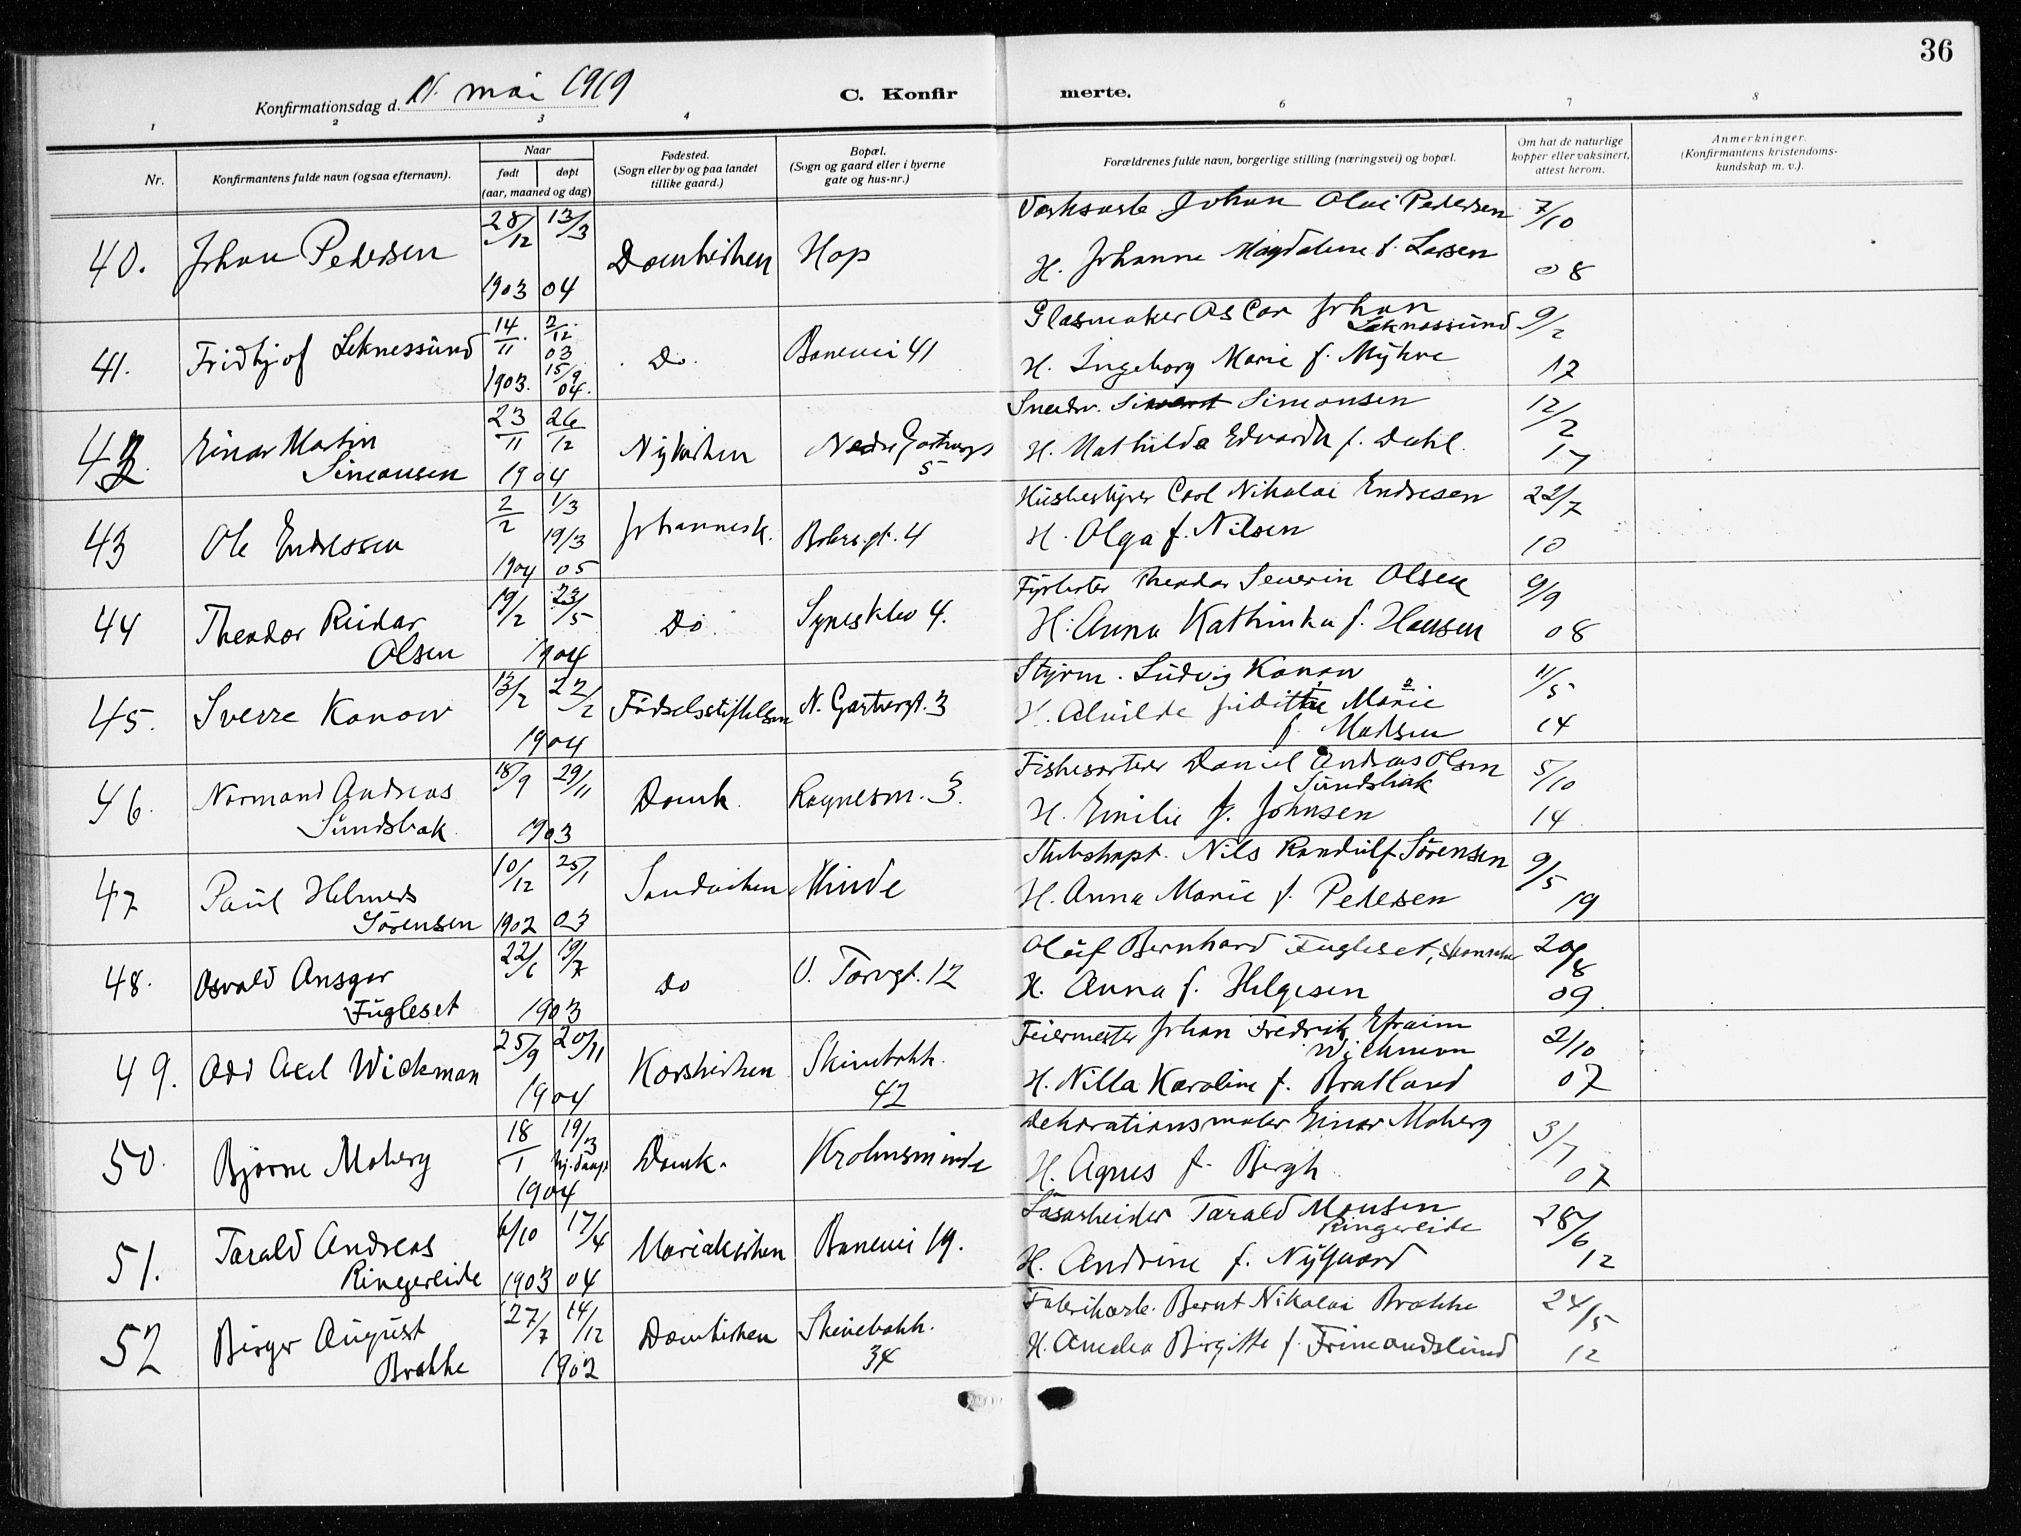 36
Konfirmationsdag d. 11. mai 1919
C. Konfir merte.
1 2 3 4 6 7 8
Nr.
Konfirmantens fulde navn (ogsaa efternavn).
Naar
født døpt
(aar, maaned og dag)
Fødested.
(Sogn eller by og paa landet
tillike gaard.)
Bopæl.
(Sogn og gaard eller i byerne
gate og hus-nr.)
Forældrenes fulde navn, borgerlige stilling (næringsvei) og bopæl.
Om hat de naturlige
kopper eller vaksinert,
attest herom.
Anmerkninger.
(Konfirmantens kristendoms-
kundskap m. v.).
40. Johan Pedersen 28/12 1903 13/3 04 Domkirken Hop
Johan Olai Pedersen
H. Johanne Magdalene f. Larsen
7/10 08
41. Fridtjof Leknessund 14/11 1903. 2/12 03 15/9 04. Do. Banevei 41
Glasmaker Oscar Johan
Leknessund
H. Ingeborg Marie f. Myhre
9/2 17
42. Einar Martin
Simonsen
23/11 26/12 1904 Nykirken Nedre Gartnergt
5
Snedkr. Simonsen
H. Mathilde Edvarda f. Dahl.
12/2 17
43 Ole Endressen 2/2 1904 1/3 19/3 05 Johannesk. 4
Husbestyrer Carl Nikolai Endresen
H. Olga f. Nilsen
22/7 10
44 Theodor Reidar
Olsen
19/2 23/5 1904 Do Synesklev 4.
Fyrbøter Theodor Severin Olsen
H. Anna Kathinka f. Hansen
9/9 08
45. Sverre Konow 13/2 22/2 1904 Fødselsstiftelsen N. Gartnergt. 3
Styrm. Ludvig Konow
H. Alvilde Marie
f. Madsen
11/5 14
46. Normand Andreas
Sundsbak
18/9 29/11 1903 Domk. 3.
Fiskesorterer Daniel Andreas Olsen
Sundsbak
H. Emilie f. Johnsen
5/10 14
47 Paul Helmers
Sørensen
10/12 1902 25/1 03 Sandviken Minde
Skibskapt. Nils Randulf Sørensen
H. Anna Marie f. Pedersen
9/5 19
48. Osvald Ansgar
Fugleset
22/6 19/7 1903 Do V. Torvgt. 12
Olaf Bernhard Fugleset,
H. Anna f. Helgesen
20/8 09.
49. Odd Axel Wickman 25/9 20/11 1904 Korskirken Skivebakk.
42
Feiermester Johan Fredrik Efraim
Wickman
H. Nilla Karoline f. Bratland
2/10 07
50. Bjarne Moberg 18/1 19/3 hj. døpt 1904 Domk. Krohnsminde
Dekorationsmaler Einar Moberg
H. Agnes f. Bergh
3/7 07
51. Tarald Andreas
Ringereide
6/10 1903 17/4 04 Mariakirken Banevei 19.
Løsarbeider Tarald Monsen
Ringereide
H. Andrine f. Nygaard
28/6 12
52 Birger August
Brakke
27/7 14/12 1902 Domkirken Skivebakk.
34
Fabrikarb. Bernt Nikolai Brakke
H. Amalia Birgitte f. Frimandslund
24/5 12